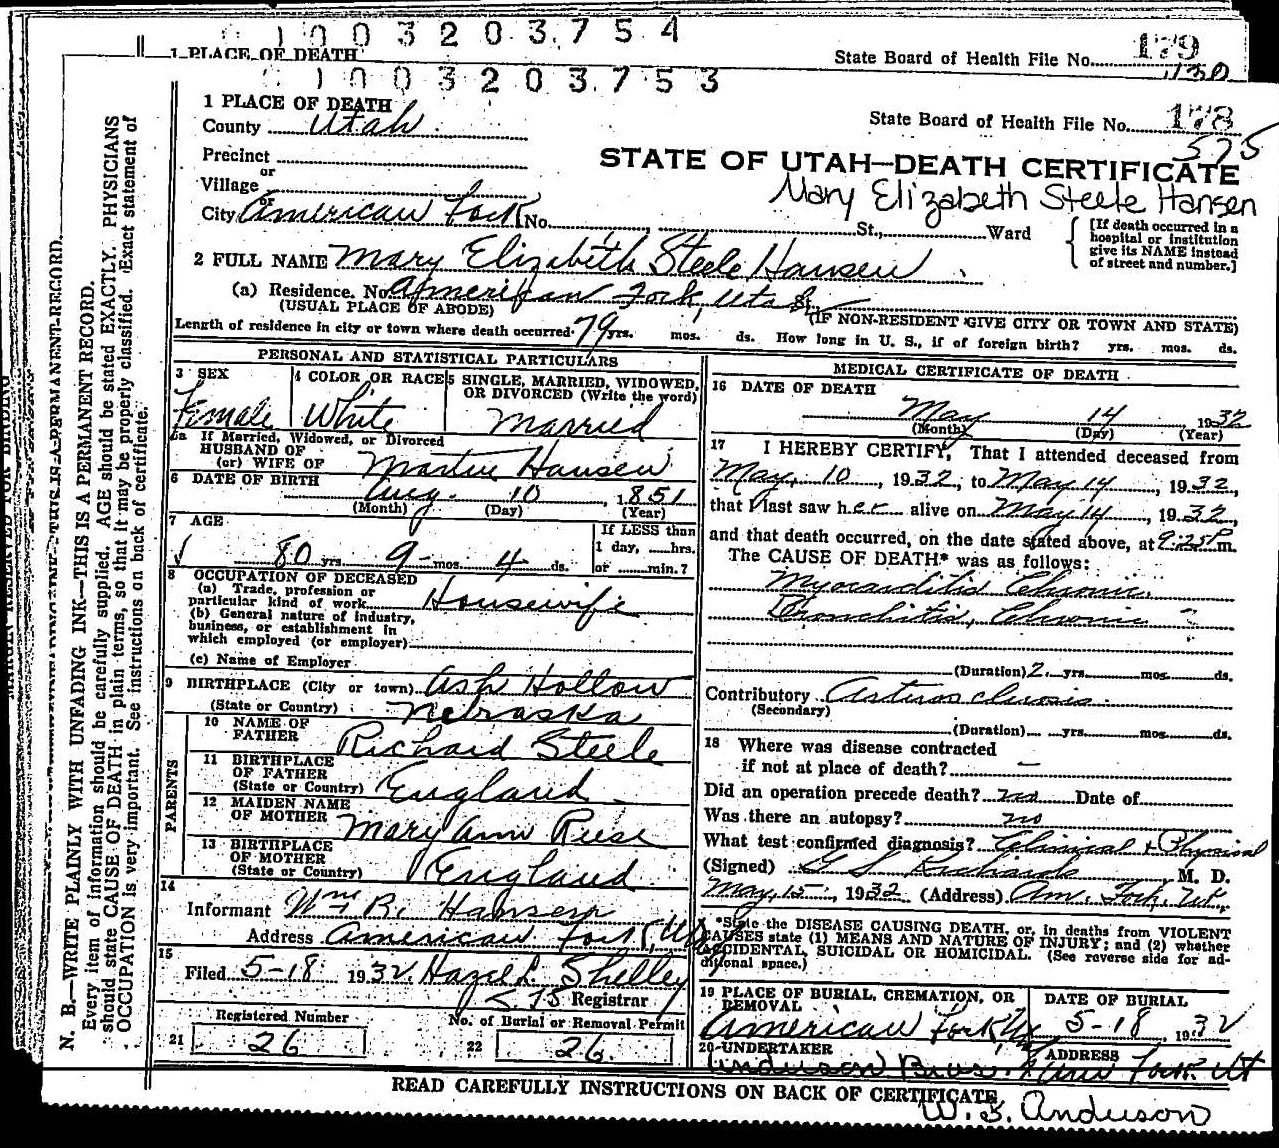 0 1 0 0 3 2 0 3 7 5 4
1 PLACE OF DEATH
State Board of Health File No. 179
1130
0 1 0 0 3 2 0 3 7 5 3
1 PLACE OF DEATH
County Utah
State Board of Health File No. 178
575
Precinct
or
Village
or
City American Fork No. St., Ward
STATE OF UTAH—DEATH CERTIFICATE
Mary Elizabeth Steele Hansen
[If death occurred in a hospital or institution give its NAME instead of street and number.]
2 FULL NAME Mary Elizabeth Steele Hansen
(a) Residence. No. American Fork, Utah St.
(USUAL PLACE OF ABODE) (IF NON-RESIDENT GIVE CITY OR TOWN AND STATE)
Length of residence in city or town where death occurred 79 yrs. mos. ds. How long in U. S., if of foreign birth? yrs. mos. ds.
PERSONAL AND STATISTICAL PARTICULARS
3 SEX Female
4 COLOR OR RACE White
5 SINGLE, MARRIED, WIDOWED, OR DIVORCED (Write the word) Married
5a If Married, Widowed, or Divorced
HUSBAND OF
(or) WIFE OF Martin Hansen
6 DATE OF BIRTH Aug. 10 1851
(Month) (Day) (Year)
7 AGE
80 yrs. 9 mos. 4 ds.
If LESS than 1 day, hrs. or min.?
8 OCCUPATION OF DECEASED
(a) Trade, profession or particular kind of work Housewife
(b) General nature of industry, business, or establishment in which employed (or employer)
(c) Name of Employer
9 BIRTHPLACE (City or town) Ash Hollow
(State or Country) Nebraska
PARENTS
10 NAME OF FATHER Richard Steele
11 BIRTHPLACE OF FATHER (State or Country) England
12 MAIDEN NAME OF MOTHER Mary Ann Reese
13 BIRTHPLACE OF MOTHER (State or Country) England
14
Informant Wm R. Hansen
Address American Fork, Ut
15
Filed 5-18 1932 Hazel L Shelley
Registrar
21 Registered Number 26
22 No. of Burial or Removal Permit 26.
MEDICAL CERTIFICATE OF DEATH
16 DATE OF DEATH
May 14 1932
(Month) (Day) (Year)
17 I HEREBY CERTIFY, That I attended deceased from
May, 10, 1932, to May 14, 1932,
that I last saw her alive on May 14, 1932,
and that death occurred, on the date stated above, at 9:25 P m.
The CAUSE OF DEATH* was as follows:
Myocarditis Chronic.
Bronchitis, Chronic "
(Duration) 2 yrs. mos. ds.
Contributory Arteriosclerosis
(Secondary)
(Duration) yrs. mos. ds.
18 Where was disease contracted
if not at place of death? —
Did an operation precede death? no Date of
Was there an autopsy? no
What test confirmed diagnosis? Clinical + Physical
(Signed) G S Richards, M. D.
May, 15, 1932 (Address) Am. Fork, Ut.
*State the DISEASE CAUSING DEATH, or, in deaths from VIOLENT
CAUSES state (1) MEANS AND NATURE OF INJURY; and (2) whether
ACCIDENTAL, SUICIDAL OR HOMICIDAL. (See reverse side for additional space.)
19 PLACE OF BURIAL, CREMATION, OR REMOVAL
American Fork Ut
DATE OF BURIAL
5-18, 1932
20 UNDERTAKER ADDRESS
Anderson Bros. Am Fork Ut
READ CAREFULLY INSTRUCTIONS ON BACK OF CERTIFICATE
W. S. Anderson
N. B.—WRITE PLAINLY WITH UNFADING INK—THIS IS A PERMANENT RECORD.
Every item of information should be carefully supplied. AGE should be stated EXACTLY. PHYSICIANS
should state CAUSE OF DEATH in plain terms, so that it may be properly classified. Exact statement of
OCCUPATION is very important. See instructions on back of certificate.
MARGIN RESERVED FOR BINDING